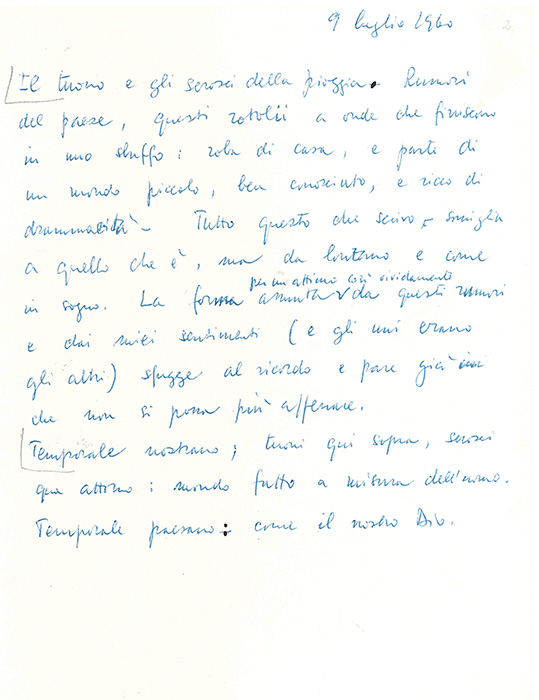 9 luglio 1960
2
Il tuono e gli scrosci della pioggia. Rumori
del paese, questi rotolii a onde che finiscono
in uno sbuffo: roba di casa, e parte di
un mondo piccolo, ben conosciuto, e ricco di
drammaticità. Tutto questo che scrivo somiglia
a quello che è, ma da lontano e come
per un attimo così vividamente
in sogno. La forma assunta da questi rumori
e dai miei sentimenti (e gli uni erano
gli altri) sfugge al ricordo e pare già
che non si possa più afferrare.
Temporale nostrano; tuoni qui sopra, scrosci
qua attorno: mondo fatto a misura dell'uomo.
Temporale paesano: come il nostro Dio.